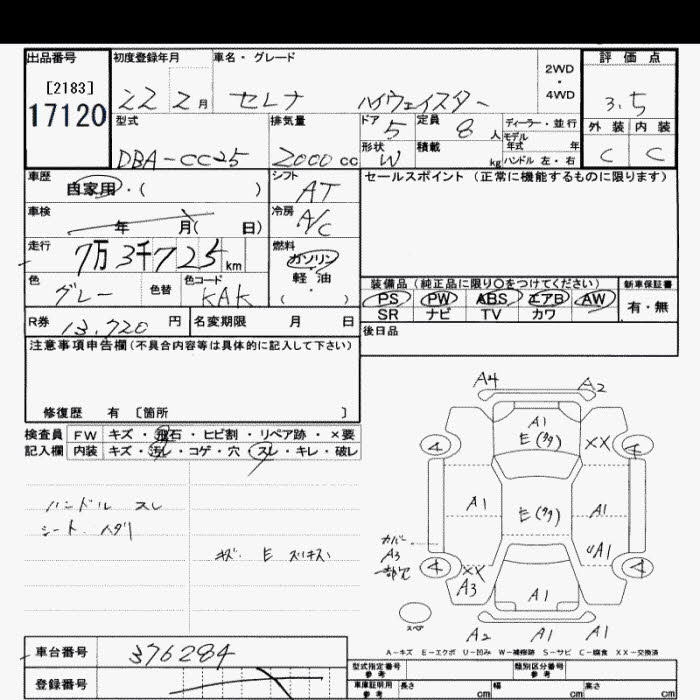 出品番号 初度登録年月 車名・グレード 2WD・4WD 評価点
[2183]
17120
22 2月 セレナ ハイウェイスター 3.5
型式 排気量 ドア 5 定員 8人 ディーラー・並行 外装 内装
モデル年式 年
DBA-CC25 2000cc 形状 W 積載 kg ハンドル 左・右 C C
車歴 自家用・( ) シフト AT セールスポイント(正常に機能するものに限ります)
車検 年 月( 日) 冷房 A/C
走行 7万3千725km 燃料 ガソリン・軽油・( )
色 グレー 色替 色コード KAK
装備品(純正品に限り○をつけてください) 新車保証書
PS PW ABS エアB AW 有・無
SR ナビ TV カワ
R券 13,720円 名変期限 月 日 後日品
注意事項申告欄(不具合内容等は具体的に記入して下さい)
修復歴 有 〔箇所 〕
検査員 FW キズ・飛石・ヒビ割・リペア跡・×要
記入欄 内装 キズ・汚レ・コゲ・穴・スレ・キレ・破レ
ハンドル スレ
シート
キズ E
A4 A2
A1
E XX
4 4
A1 E A1
カバー
A3
4 XX A3 UA1 4
A1
スペア A2 A1 A1
A-キズ E-エクボ U-凹み W-補修跡 S-サビ C-腐食 XX-交換済
車台番号 376284
登録番号
型式指定番号 参考 類別区分番号 参考
車庫証明用 参考 長さ cm 幅 cm 高さ cm